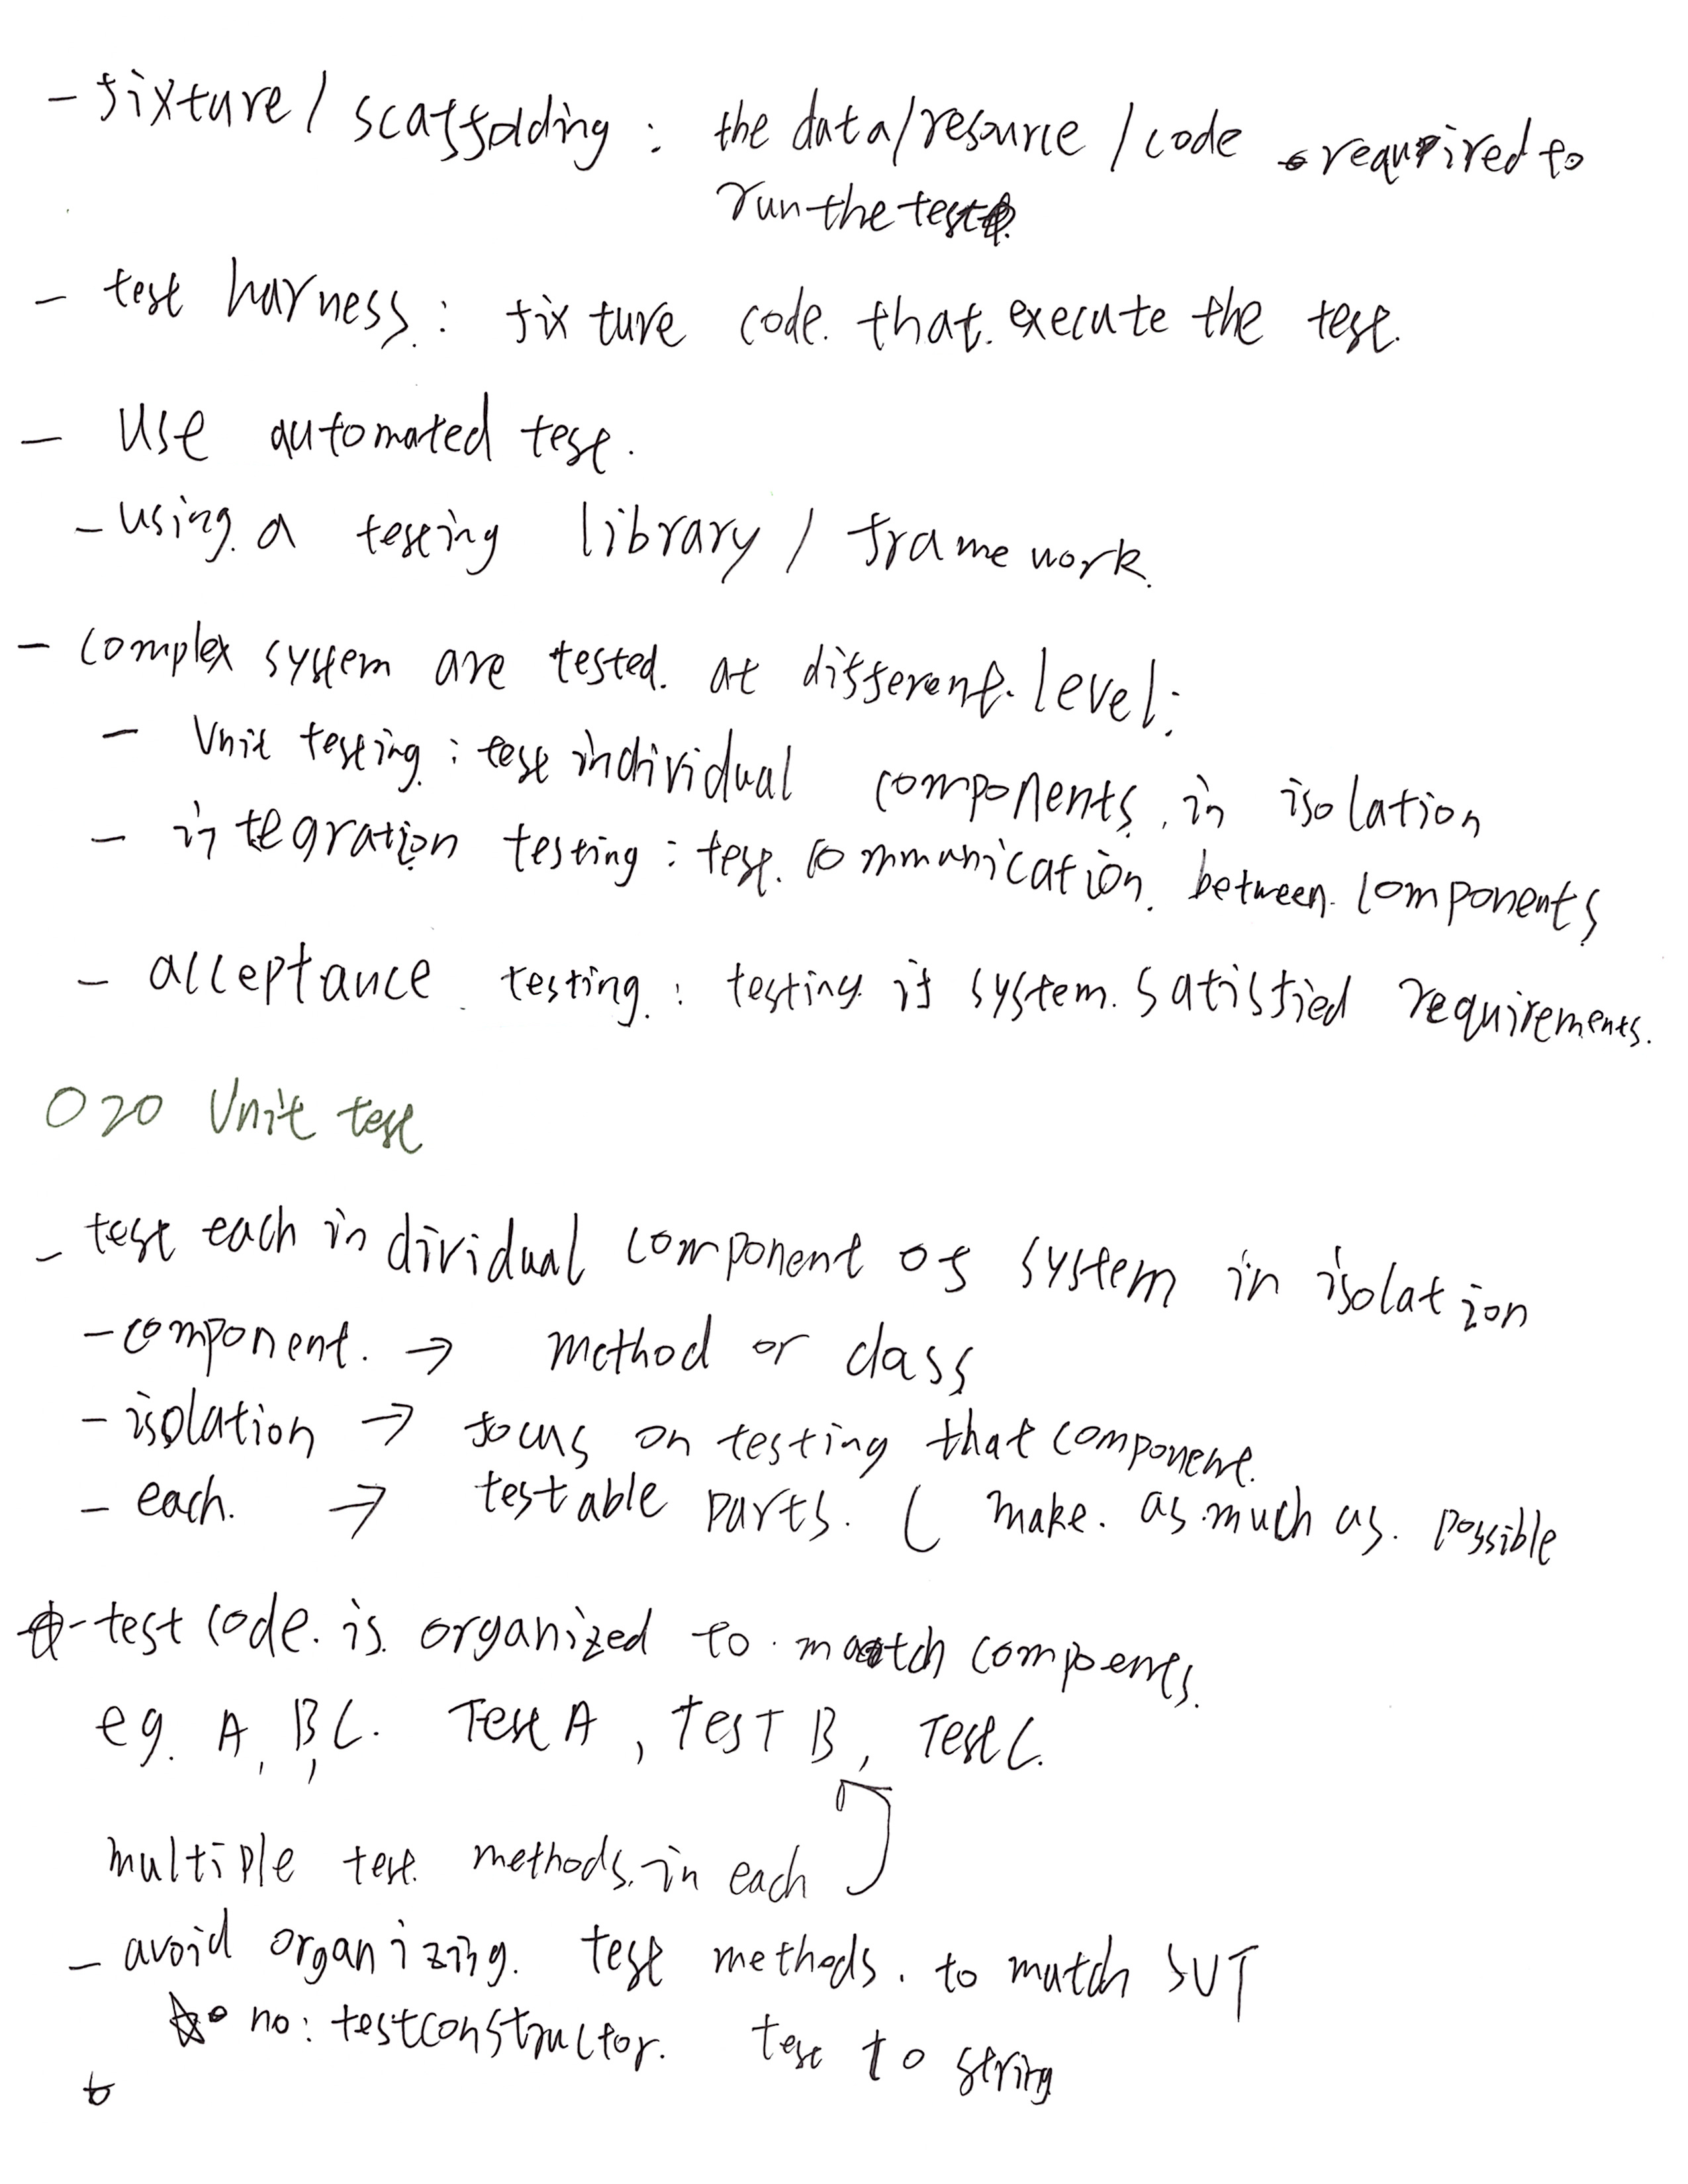 - fixture / scaffolding : the data/resource / code required to
run the test
- test harness : fixture code that execute the test.
- Use automated test.
- using a testing library / framework.
- complex system are tested at different level:
- Unit testing : test individual components in isolation
- integration testing : test communication between components
- acceptance testing : testing if system satisfied requirements.
020 Unit test
- test each individual component of system in isolation
- component. → method or class
- isolation → focus on testing that component.
- each. → testable parts. ( make as much as possible
- test code is organized to match compoents.
eg. A, B, C. Test A, TEST B, Test C.
multiple test methods in each
- avoid organizing test methods to match SUT
no: testconstructor. test to string